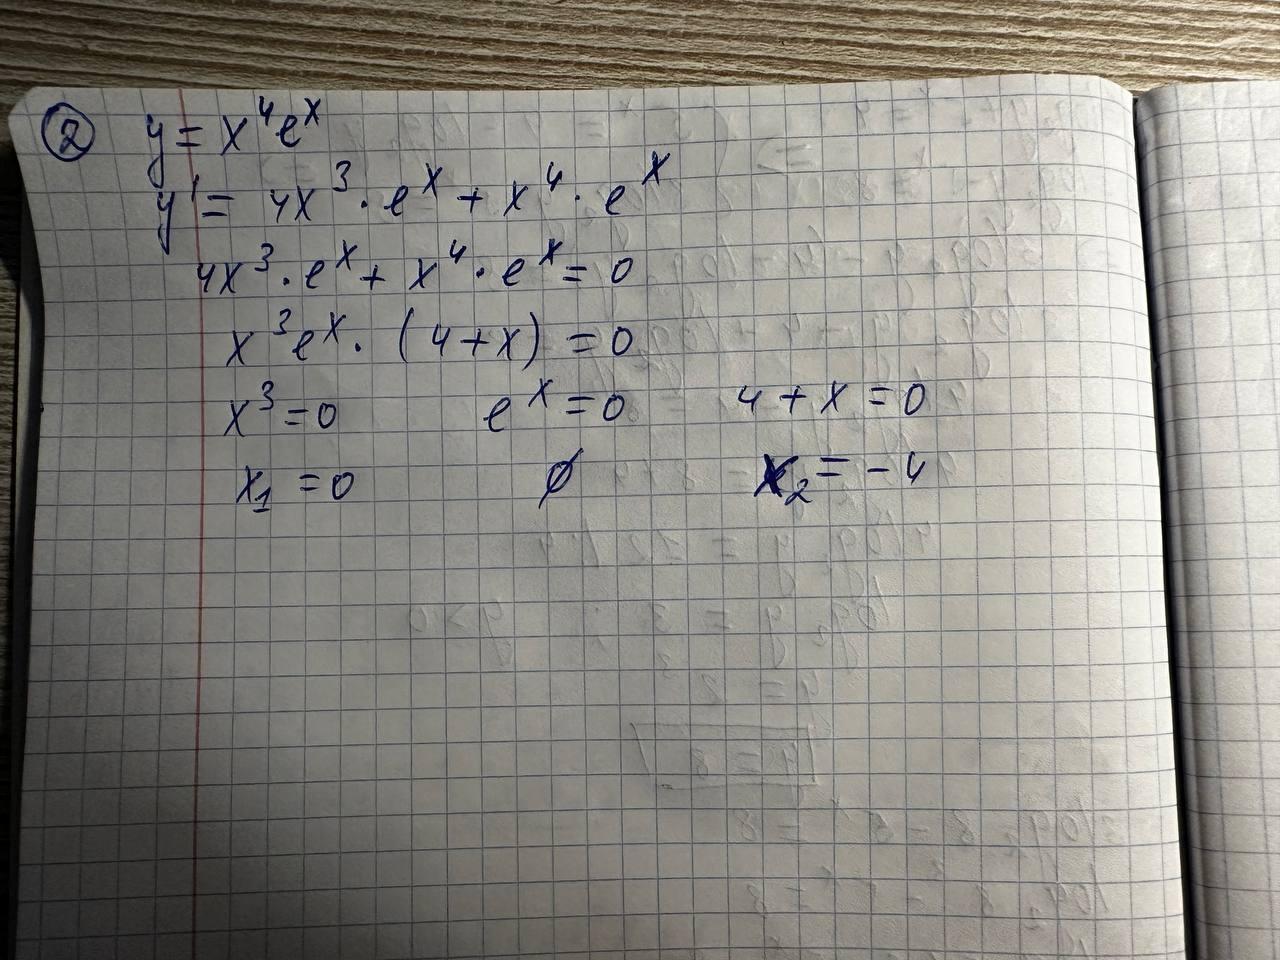 ② y = x⁴eˣ
y' = 4x³ · eˣ + x⁴ · eˣ
4x³ · eˣ + x⁴ · eˣ = 0
x³eˣ · (4 + x) = 0
x³ = 0 eˣ = 0 4 + x = 0
x₁ = 0 ∅ x₂ = -4